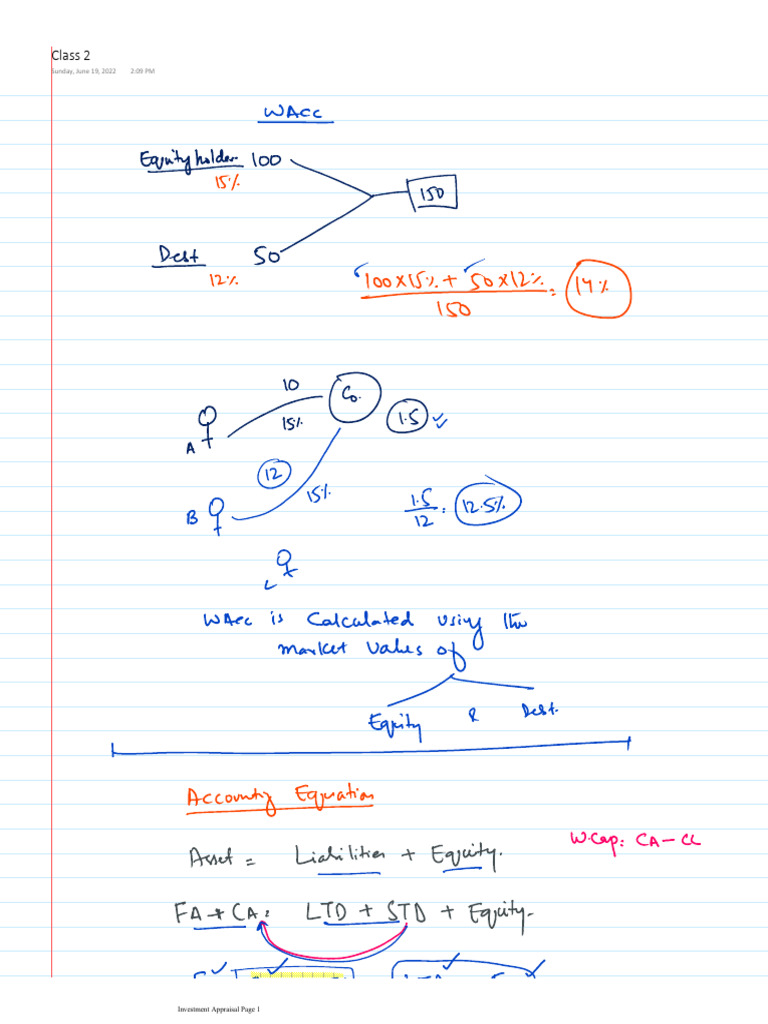 Class 2
Sunday, June 19, 2022 2:09 PM
WACC
Equity holder 100
15%
150
Debt 50
12%
100x15% + 50x12%
150
= 14%
10
Co.
15%
1.5
A
12
15%
B
1.5
12
= 12.5%
WAcc is Calculated using the
market values of
Equity & Debt.
Accounting Equation
W.Cap: CA - CL
Asset = Liabilities + Equity.
FA + CA = LTD + STD + Equity.
Investment Appraisal Page 1